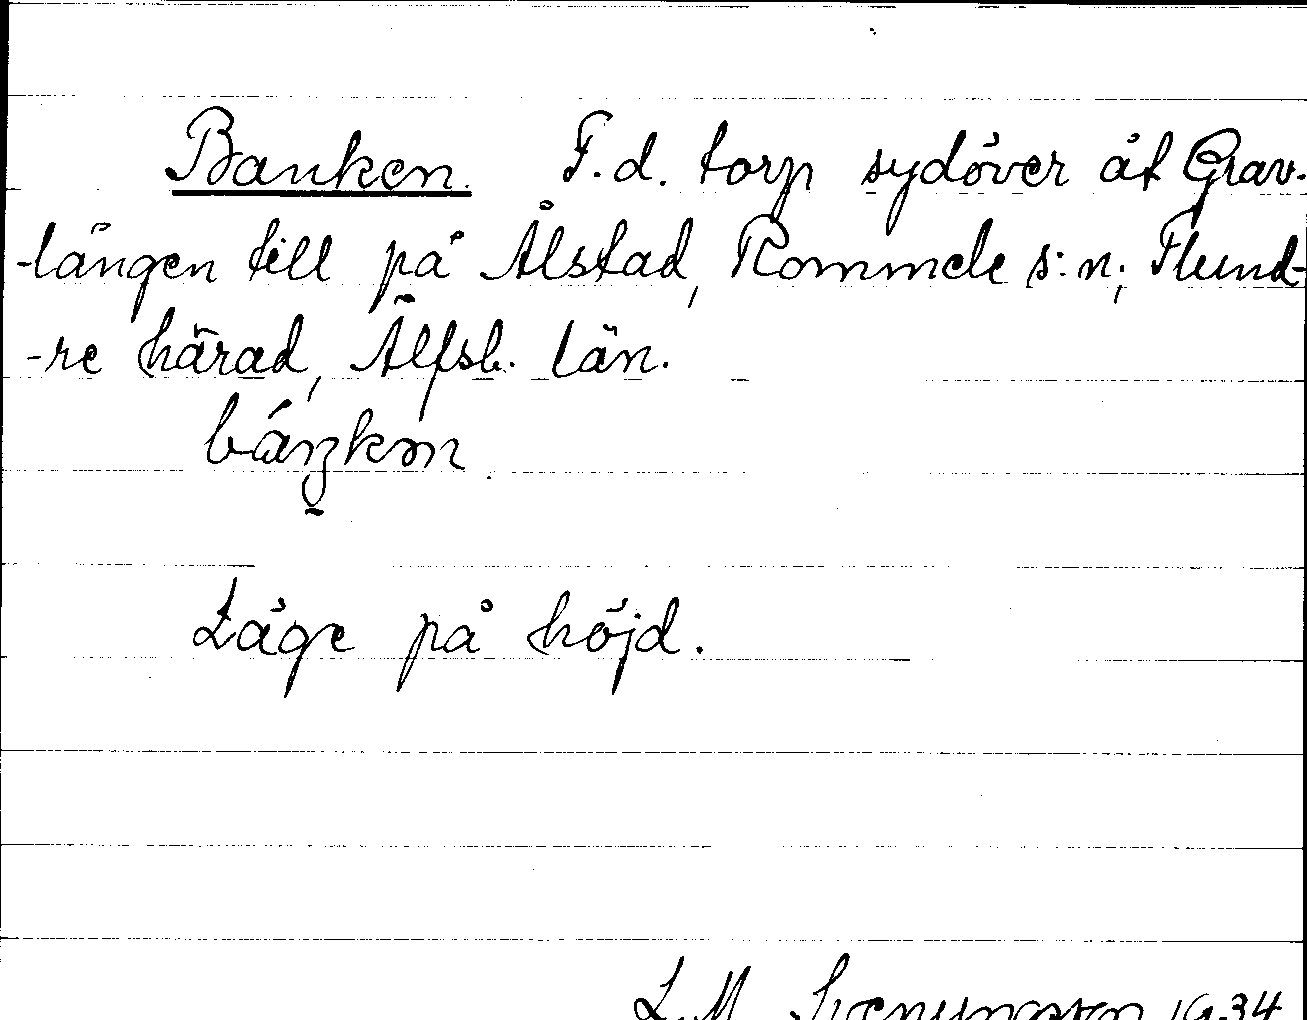 Banken. F.d. torp sydöver åt Grav-
-längen till på Ålstad, Rommele s:n; Flund-
-re härad, Älfsb. län.
báŋkən
Läge på höjd.
L.M. Svenungsson 1934